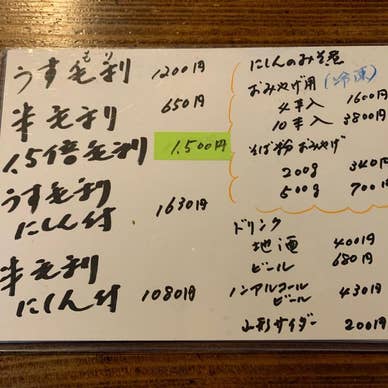 うす毛利 1200円
もり
半毛利 650円
1.5倍毛利 1.500円
うす毛利
にしん付 1630円
半毛利
にしん付 1080円
にしんのみそ煮
おみやげ用 (冷凍)
4本入 1600円
10本入 3800円
そば粉おみやげ
200g 340円
500g 700円
ドリンク
地酒 400円
ビール 680円
ノンアルコール
ビール 430円
山形サイダー 200円